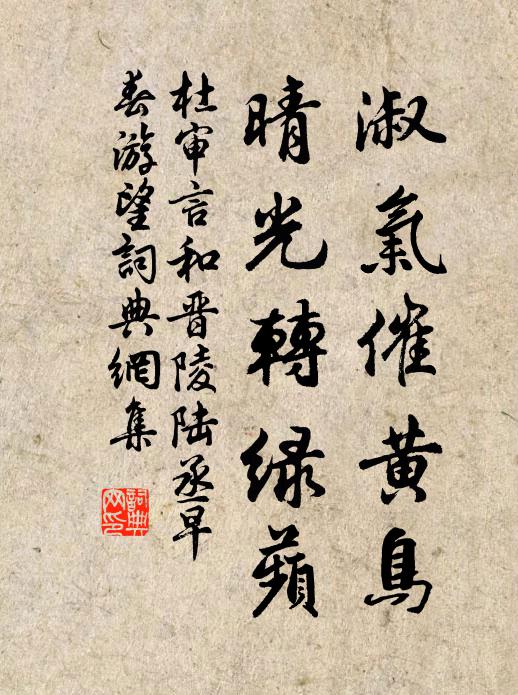 淑氣催黄鳥
晴光轉緑蘋
杜审言和晋陵陆丞早
春游望詞典網集
詞典
网印